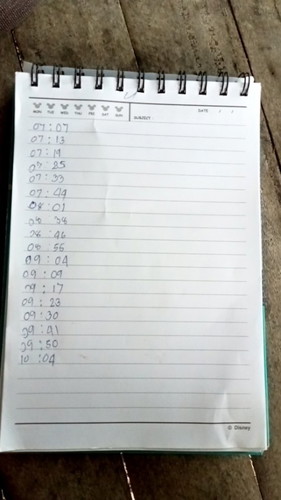 MON TUE WED THU FRI SAT SUN
DATE / /
SUBJECT
07:07
07:13
07:19
07:25
07:33
07:44
08:01
08 38
08 46
08 56
09:04
09:09
09:17
09:23
09:30
09:41
09:50
10:04
© Disney